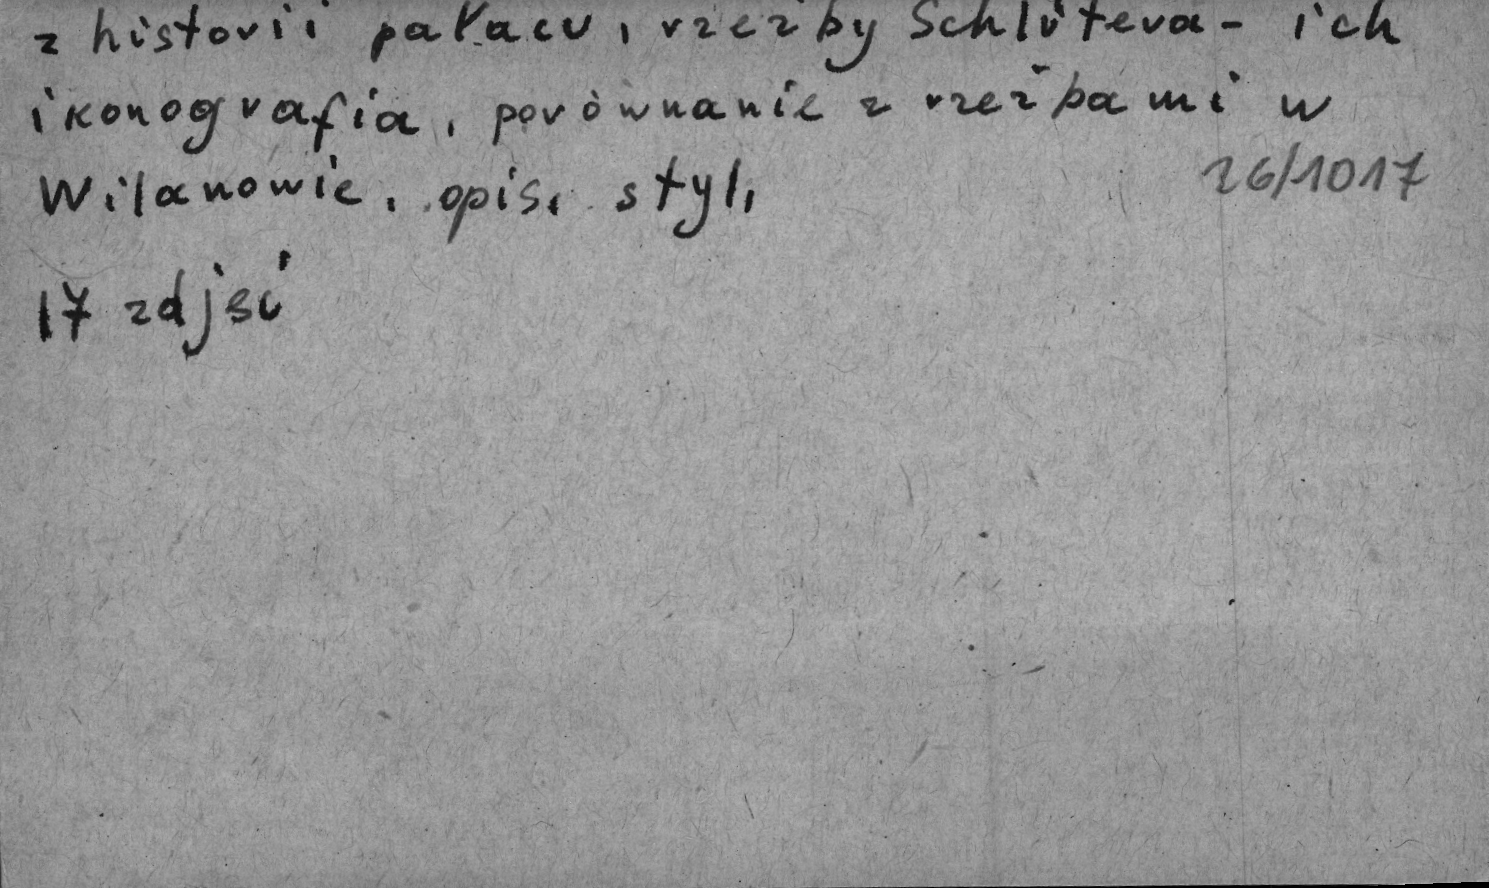 z historii pałacu, rzeźby Schlütera - ich
ikonografia, porównanie z rzeźbami w
Wilanowie, opis, styl,
26/1017
17 zdjęć